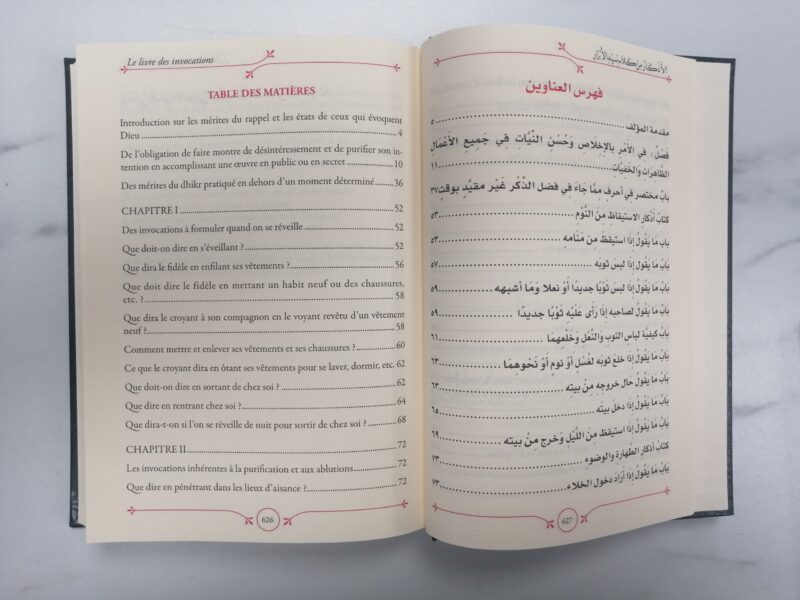 Le livre des invocations
TABLE DES MATIÈRES
Introduction sur les mérites du rappel et les états de ceux qui évoquent
Dieu 4
De l'obligation de faire montre de désintéressement et de purifier son in-
tention en accomplissant une œuvre en public ou en secret 10
Des mérites du dhikr pratiqué en dehors d'un moment déterminé 36
CHAPITRE I 52
Des invocations à formuler quand on se réveille 52
Que doit-on dire en s'éveillant ? 52
Que dira le fidèle en enfilant ses vêtements ? 56
Que doit dire le fidèle en mettant un habit neuf ou des chaussures,
etc. ? 58
Que dira le croyant à son compagnon en le voyant revêtu d'un vêtement
neuf ? 58
Comment mettre et enlever ses vêtements et ses chaussures ? 60
Ce que le croyant dira en ôtant ses vêtements pour se laver, dormir, etc. 62
Que doit-on dire en sortant de chez soi ? 62
Que dire en rentrant chez soi ? 64
Que dira-t-on si l'on se réveille de nuit pour sortir de chez soi ? 68
CHAPITRE II 72
Les invocations inhérentes à la purification et aux ablutions 72
Que dire en pénétrant dans les lieux d'aisance ? 72
626
الأذكار من كلام سيد الأبرار
فهرس العناوين
مقدمة المؤلف ٥
فصل: في الأمْر بالإخلاص وَحُسْن النِّيَّات في جَميع الأعْمَال
الظاهرات والخفيَّات ١١
بابُ مختصر في أحرف ممَّا جَاءَ في فضل الذّكْر غَيْر مقيَّد بوقتٍ ٣٧
كتابُ أذكار الاستيقاظ منَ النَّوْم ٥٣
بَابُ مَا يَقُولُ إذَا استيقظَ منْ مَنَامه ٥٣
بَابُ مَا يَقولُ إذا لبسَ ثوبَه ٥٧
بَابُ مَا يَقُولُ إذا لبسَ ثَوْبًا جديدًا أوْ نعلا وَمَا أشبهه ٥٩
بَابُ مَا يَقُولُ لصاحبه إذا رَأى عَلَيْه ثَوْبًا جديدًا ٥٩
بَابُ كيفيَّة لباس الثوب والنَّعْل وَخَلْعهمَا
بَابُ مَا يَقُولُ إذا خلعَ ثوبَه لغُسْل أوْ نوم أوْ نَحْوهمَا ٦٣
بَابُ مَا يَقُولُ حَالَ خروجه منْ بيته ٦٣
بَابُ مَا يَقُولُ إذَا دخلَ بيتَه ٦٥
بَابُ مَا يَقُولُ إذَا استيقظ منَ اللَّيْل وَخرجَ منْ بيته ٦٩
كتابُ أذكار الطَّهارة والوضوء ٧٣
بَابُ مَا يَقُولُ إذَا أرَادَ دخولَ الخلاء ٧٣
627